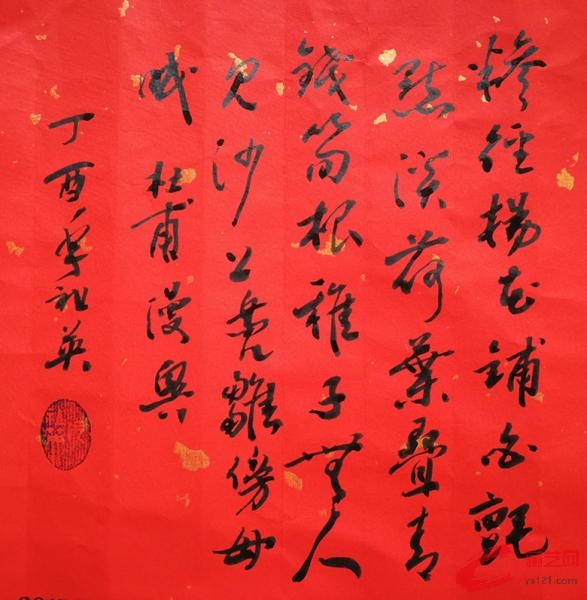 糝徑楊花鋪白氈
點溪荷葉疊青
錢筍根稚子無人
見沙上鳧雛傍母
眠 杜甫漫興
丁酉 英
ys121.com